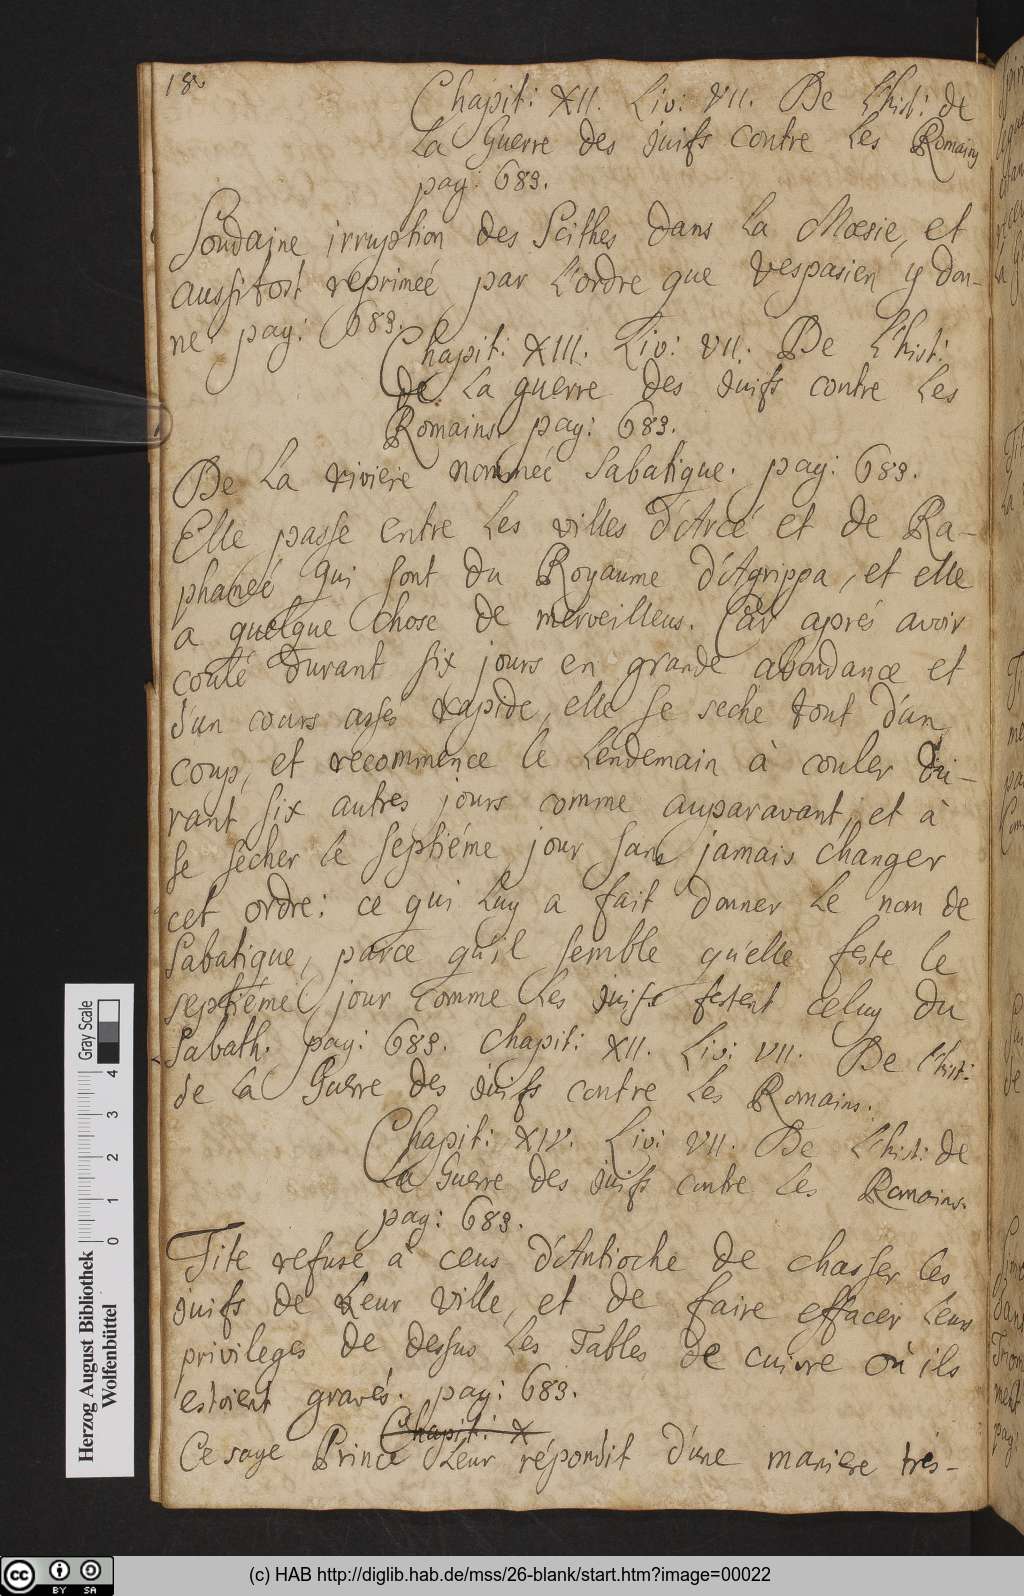 18.
Chapit: XII. Liv: VII. De L'hist: de
La Guerre des juifs contre Les Romains
pag: 689.
Soudaine irruption des Scithes dans La Mœsie, et
aussitost reprimeé par L'ordre que Vespasien y don-
ne pag: 689.
Chapit: XIII. Liv: VII. De L'hist:
de La guerre des juifs contre Les
Romains. pag: 689.
De La riviere nommeé Sabatique. pag: 689.
Elle passe entre Les villes d'Arcé et de Ra-
phaneé qui sont du Royaume d'Agrippa, et elle
a quelque chose de merveilleus. Car aprés avoir
coulé durant six jours en grande abondance et
d'un cours assés rapide, elle se seche tout d'un
coup, et recommence le Lendemain à couler du-
rant six autres jours comme auparavant, et à
se secher le septiéme jour sans jamais changer
cet ordre: ce qui Luy a fait donner Le nom de
Sabatique, parce qu'il semble qu'elle feste le
septiéme jour comme Les juifs festent celuy du
Sabath. pag: 689. Chapit: XII. Liv: VII. De L'hist:
de La Guerre des juifs contre Les Romains.
Chapit: XIV. Liv: VII. De L'hist: de
La Guerre des juifs contre Les Romains.
pag: 689.
Tite refuse à ceus d'Antioche de chasser les
juifs de Leur Ville, et de faire effacer leurs
privileges de dessus Les Tables de cuivre où ils
estoient gravés. pag: 689.
Chapit: X
Ce sage Prince Leur répondit d'une maniere tres-
Herzog August Bibliothek
Wolfenbüttel
0 1 2 3 4
Gray Scale
cc BY SA
(c) HAB http://diglib.hab.de/mss/26-blank/start.htm?image=00022